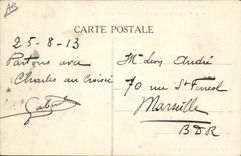 AB
CARTE POSTALE
25-8-13
Partons avec
Charles au Croisic
Mr Leon André
70 rue St Ferréol
Marseille
B D R